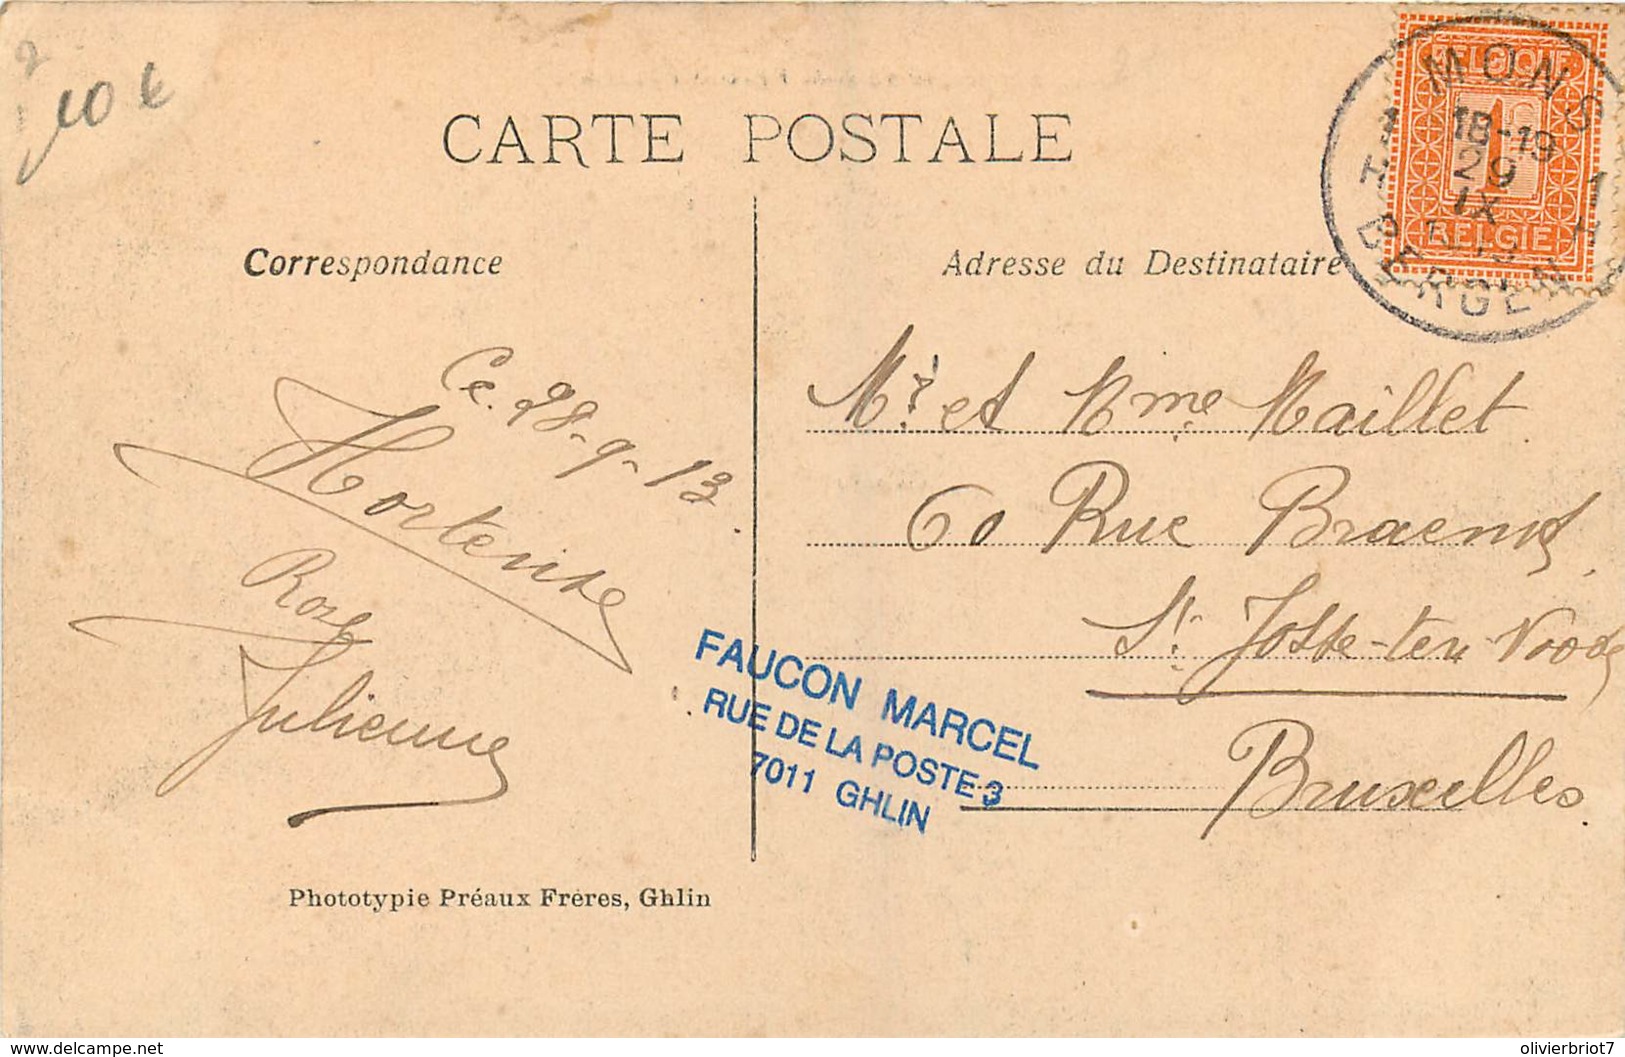 10 €
CARTE POSTALE
BELGIQUE
1
BELGIE
MONS
18-19
29
IX
1 H
1 H
BERGEN
Correspondance
Adresse du Destinataire
Ce 28-9-13.
Hortense
Rose
Julienne
Mr. et Mme Maillet
60 Rue Braemt
St. Josse-ten Noode
Bruxelles.
FAUCON MARCEL
RUE DE LA POSTE 3
7011 GHLIN
Phototypie Préaux Frères, Ghlin
delcampe.net
olivierbriot7